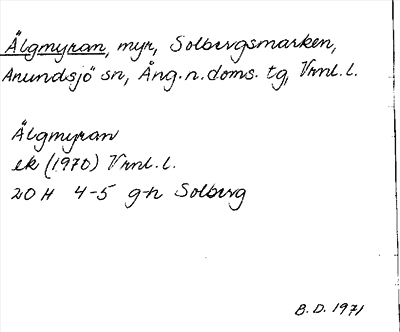 Älgmyran, myr, Solbergsmarken,
Anundsjö sn, Ång. n. doms. tg, Vrnl. l.
Älgmyran
ek (1970) Vrnl. l.
20 H 4-5 g-h Solberg
B. D. 1971